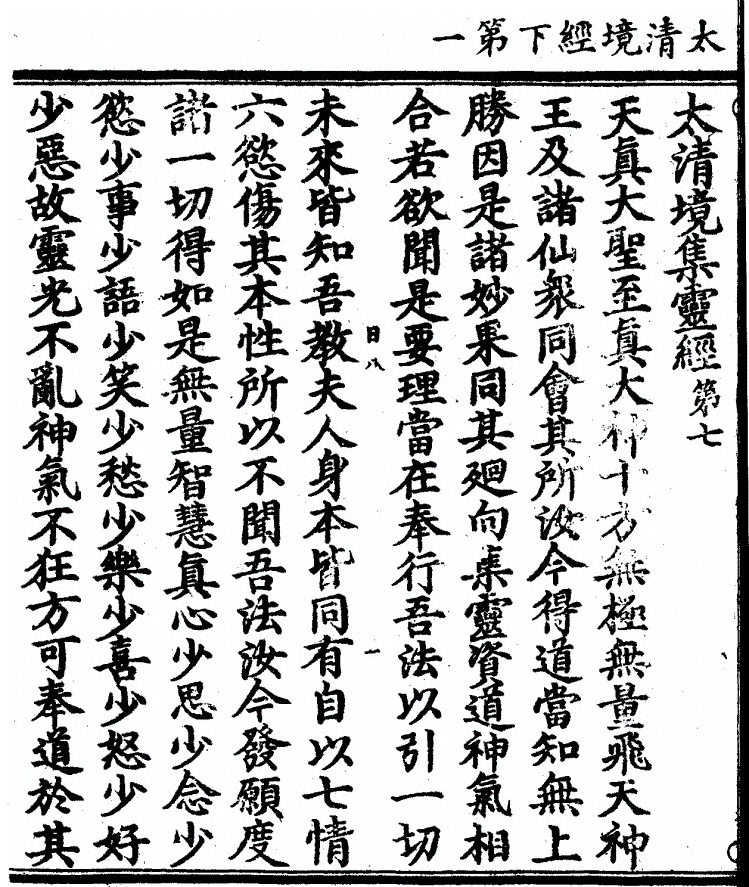 太清境經下第一
太清境集靈經第七
天眞大聖至眞大神十方無極無量飛天神
王及諸仙衆同會其所汝今得道當知無上
勝因是諸妙果同其廻向稟靈資道神氣相
合若欲聞是要理當在奉行吾法以引一切
日八 一
未來皆知吾教夫人身本皆同有自以七情
六慾傷其本性所以不聞吾法汝今發願度
諸一切得如是無量智慧眞心少思少念少
慾少事少語少笑少愁少樂少喜少怒少好
少惡故靈光不亂神氣不狂方可奉道於其